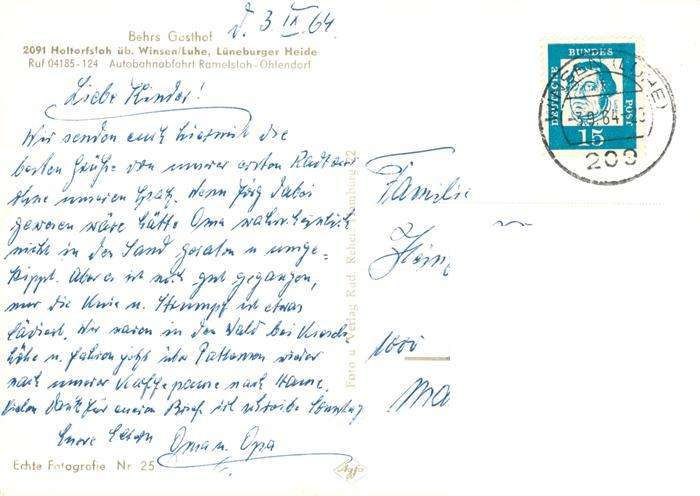 d. 3 IX. 64.
Behrs Gasthof
2091 Holtorfsloh üb. Winsen/Luhe, Lüneburger Heide
Ruf 04185-124 Autobahnabfahrt Ramelsloh-Ohlendorf
Liebe Kinder!
Wir senden euch hiermit die
besten Grüße von unserer ersten Radtour
ohne unseren Spatz. Wenn Jörg dabei
gewesen wäre hätte Oma wahrscheinlich
nicht in den Sand geraten u umge-
kippt. Aber es ist noch gut gegangen,
nur die Knie u. Strumpf ist etwas
lädiert. Wir waren in den Wald bei
höhe u. fahren jetzt über wieder
nach unserer Kaffepause nach Hause.
Vielen Dank für eueren Brief ich schreibe Sonntag
Eure Eltern Oma u. Opa
Echte Fotografie Nr 25
Agfa
Foto u. Verlag Rud. Hamburg 22
DEUTSCHE BUNDES POST
15
(LUHE)
-3.9.64
209
Familie
1000